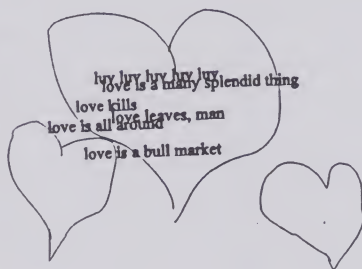 luv luv luv luv luv
love is a many splendid thing
love kills
love leaves, man
love is all around
love is a bull market